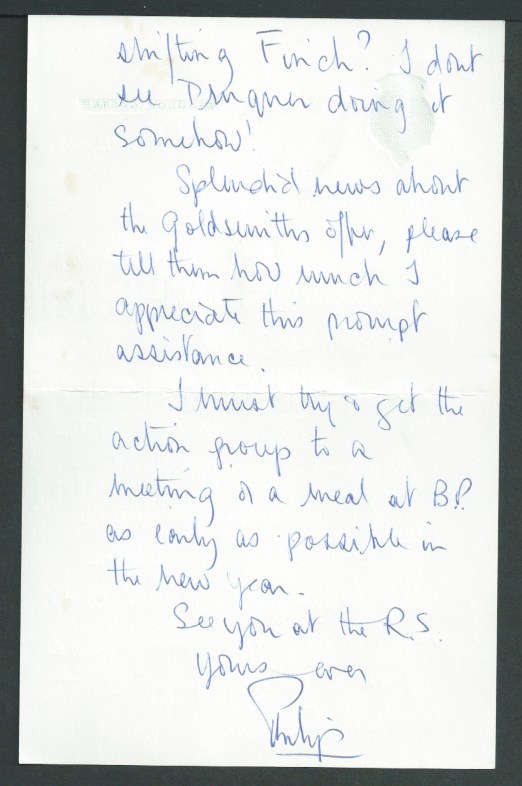 shifting Finch? I dont
see doing it
somehow!
Splendid news about
the Goldsmiths offer, please
tell them how much I
appreciate this prompt
assistance.
I must try & get the
action group to a
meeting or a meal at B.P.
as early as possible in
the new year.
See you at the R.S.
Yours ever
Philip